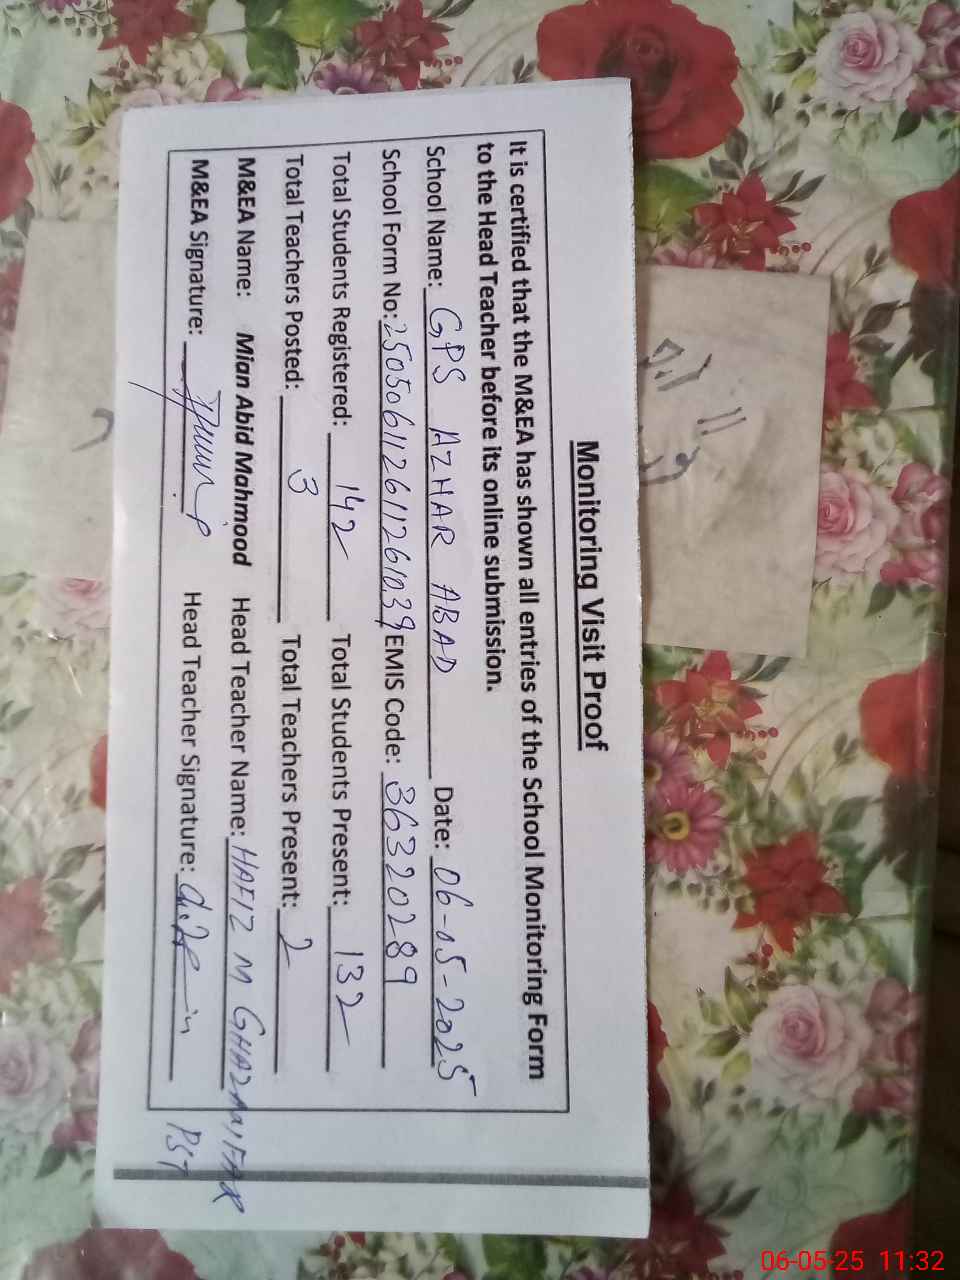 Monitoring Visit Proof
It is certified that the M&EA has shown all entries of the School Monitoring Form
to the Head Teacher before its online submission.
School Name: GPS AZHAR ABAD Date: 06-05-2025
School Form No: EMIS Code: 36320289
Total Students Registered: 142 Total Students Present: 132
Total Teachers Posted: 3 Total Teachers Present: 2
M&EA Name: Mian Abid Mahmood Head Teacher Name: HAFIZ M
M&EA Signature: Head Teacher Signature:
PST
06-05-25 11:32